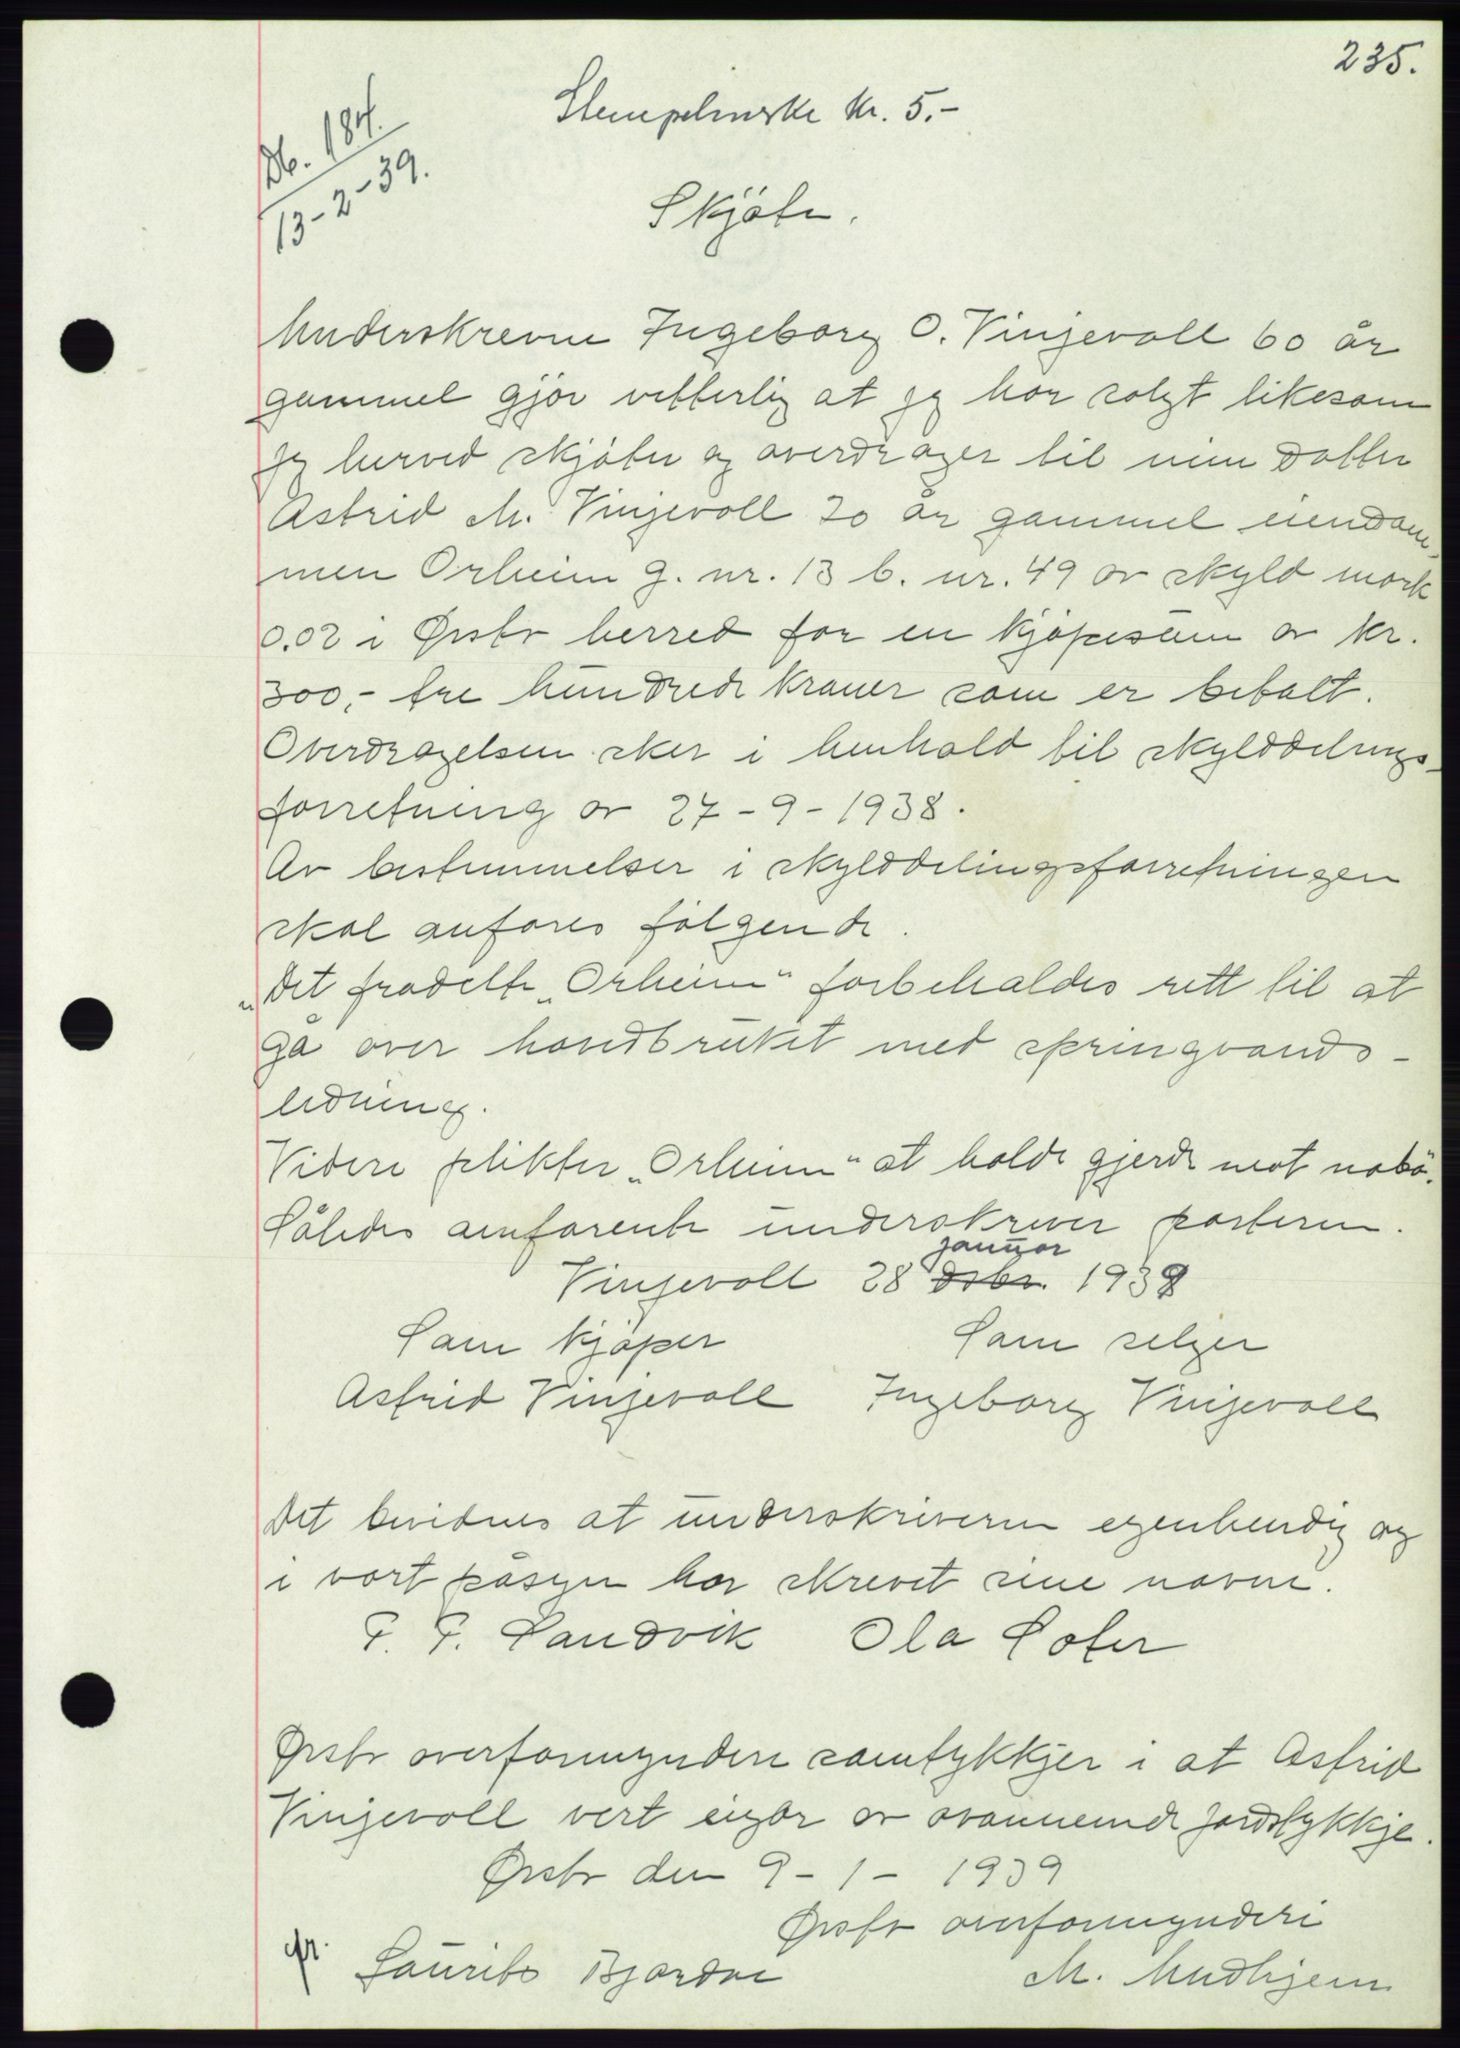 235.
Db. 184.
13-2-39.
Stempelmerke kr. 5.-
Skjöte.
Underskrevne Ingeborg O. Vinjevoll 60 år
gammel gjör vitterlig at jeg har solgt likesom
jeg herved skjöter og overdrager til min datter
Astrid M. Vinjevoll 20 år gammel eiendom-
men Orheim g. nr. 13 b. nr. 49 av skyld mark
0.02 i Örsta herred for en kjöpesum av kr.
300,- tre hundrede kroner som er betalt.
Overdragelsen sker i henhold til skylddelings-
forretning av 27-9-1938.
Av bestemmelser i skylddelingsforretningen
skal anföres fölgende.
"Det fradelte "Orheim" forbeholdes rett til at
gå over hovedbruket med springvands-
ledning.
Videre plikter "Orheim" at holde gjerde mot nabö.
Således omforente underskriver partene.
januar
Vinjevoll 28 desbr. 1939
Som kjöper Som selger
Astrid Vinjevoll Ingeborg Vinjevoll
Det bevidnes at underskriverne egenhendig og
i vort påsyn har skrevet sine navne.
P. P. Sandvik Ola Sæter
Örsta overformynderi samtykkjer i at Astrid
Vinjevoll vert eigar av ovannemnde jordstykkje.
Örsta den 9-1-1939
Örsta overformynderi
Laurits Bjørdal M. Mudhjem